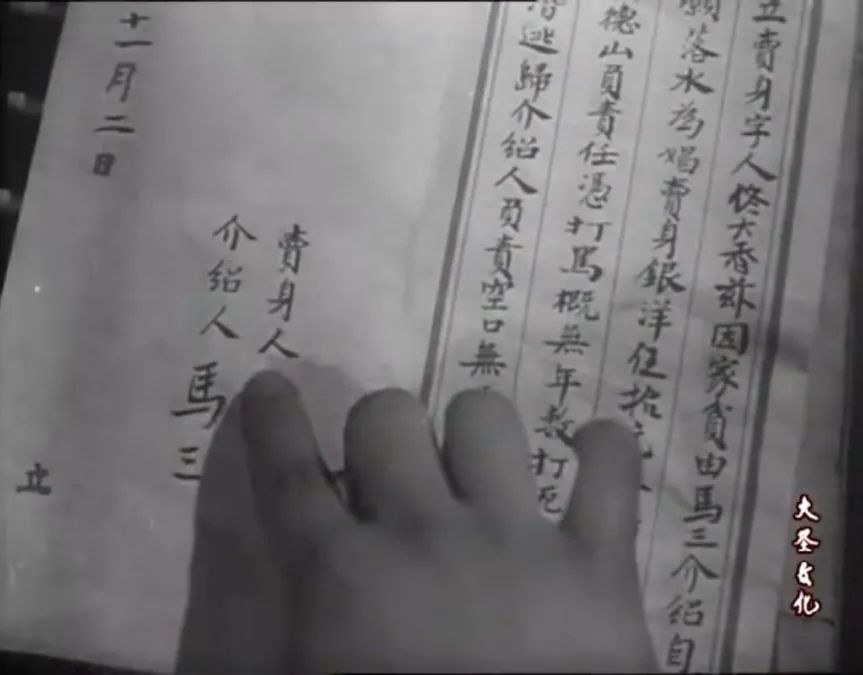 立賣身字人佟大香茲因家貧由馬三介紹自
願落水為娼賣身銀洋伍拾元
德山負責任憑打罵概無年數打死
潛逃歸介紹人負責空口無
賣身人
介紹人馬三
十一月二日
立
大圣文化